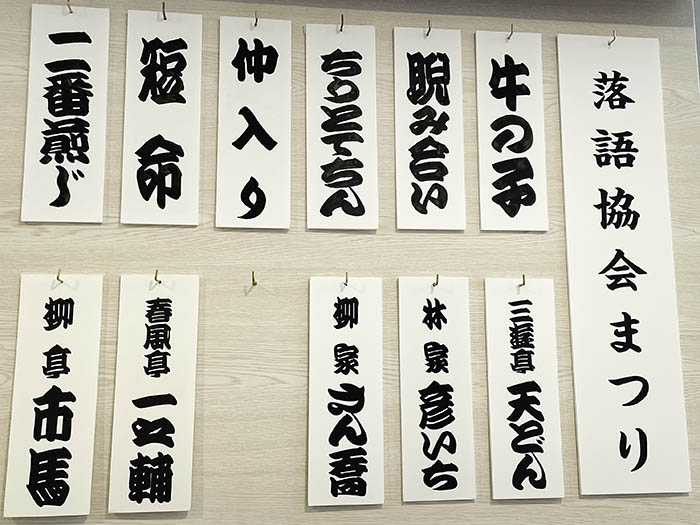 落語協会まつり
牛の子
睨み合い
ちりとてちん
仲入り
短命
二番煎じ
三遊亭 天どん
林家 彦いち
柳家 さん喬
春風亭 一之輔
柳亭 市馬